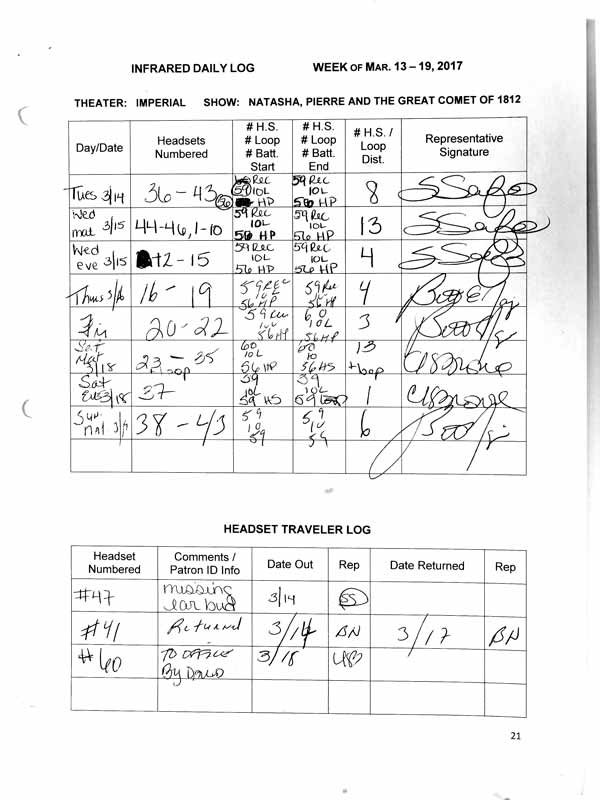 INFRARED DAILY LOG WEEK OF MAR. 13 – 19, 2017
THEATER: IMPERIAL SHOW: NATASHA, PIERRE AND THE GREAT COMET OF 1812
Day/Date Headsets Numbered # H.S. # Loop # Batt. Start # H.S. # Loop # Batt. End # H.S. / Loop Dist. Representative Signature
Tues 3/14 36 - 43 59 Rec 10L HP 59 Rec 10L 56 HP 8
Wed mat 3/15 44-46, 1-10 59 Rec 10L 56 HP 59 Rec 10L 56 HP 13
Wed eve 3/15 12 - 15 59 Rec 10L 56 HP 59 Rec 10L 56 HP 4
Thurs 3/16 16 - 19 59 REC 10L 56 HP 59 Rec 10L 56 HP 4
Fri 20 - 22 59 Rec 56 HP 60 10L 56 HP 3
Sat Mat 3/18 23 - 35 + loop 60 10L 56 HP 60 10 56 HS 13 + loop
Sat Eve 3/18 37 59 10L 59 HS 59 10L 59 1
Sun Mat 38 - 43 59 10 59 59 10 59 6
HEADSET TRAVELER LOG
Headset Numbered Comments / Patron ID Info Date Out Rep Date Returned Rep
#47 missing ear bud 3/14 SS
#41 Returned 3/14 BN 3/17 BN
#60 TO OFFICE By David 3/18
21